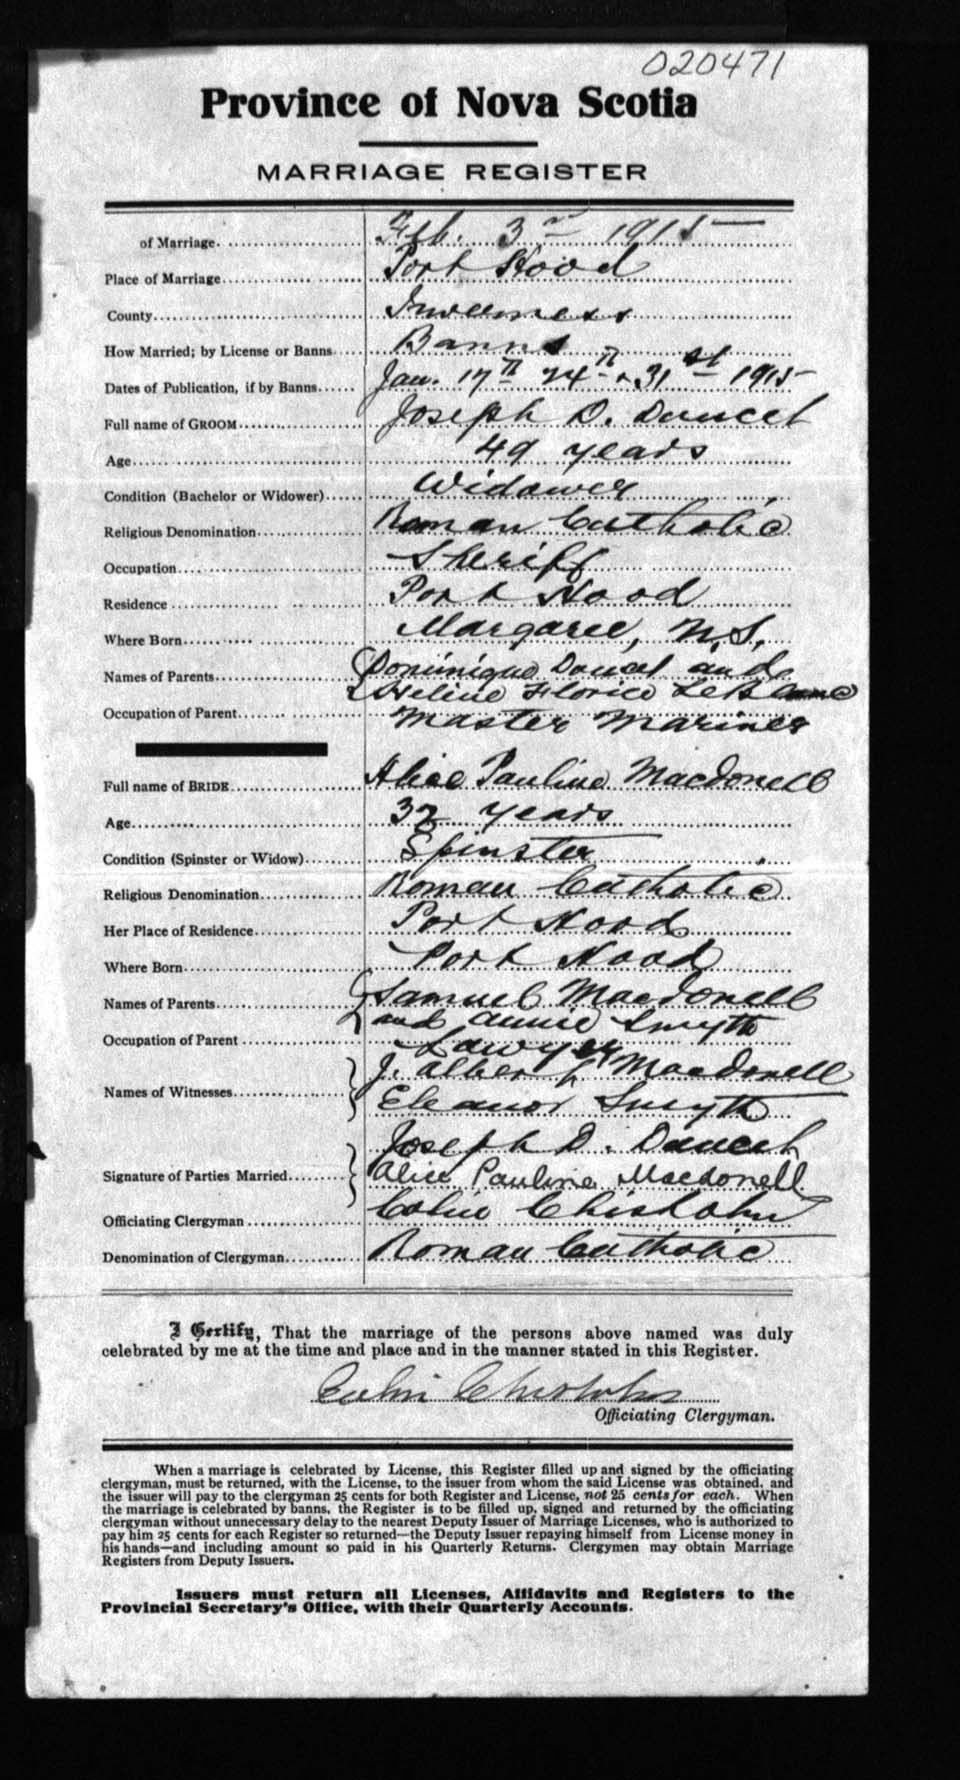 020471
Province of Nova Scotia
MARRIAGE REGISTER
of Marriage Feb. 3rd 1915
Place of Marriage Port Hood
County Inverness
How Married; by License or Banns Banns
Dates of Publication, if by Banns Jan. 17th 24th & 31st 1915
Full name of GROOM Joseph D. Doucet
Age 49 years
Condition (Bachelor or Widower) Widower
Religious Denomination Roman Catholic
Occupation Sheriff
Residence Port Hood
Where Born Margaree, N.S.
Names of Parents Dominique Doucet and
Heline Florice LeBlanc
Occupation of Parent Master Mariner
Full name of BRIDE Alice Pauline Macdonell
Age 32 years
Condition (Spinster or Widow) Spinster
Religious Denomination Roman Catholic
Her Place of Residence Port Hood
Where Born Port Hood
Names of Parents Samuel Macdonell
and Annie Smyth
Occupation of Parent Lawyer
Names of Witnesses J. Albert Macdonell
Eleanor Smyth
Joseph D. Doucet
Signature of Parties Married Alice Pauline Macdonell
Officiating Clergyman Colin Chisholm
Denomination of Clergyman Roman Catholic
I Certify, That the marriage of the persons above named was duly
celebrated by me at the time and place and in the manner stated in this Register.
Colin Chisholm
Officiating Clergyman.
When a marriage is celebrated by License, this Register filled up and signed by the officiating
clergyman, must be returned, with the License, to the issuer from whom the said License was obtained, and
the issuer will pay to the clergyman 25 cents for both Register and License, not 25 cents for each. When
the marriage is celebrated by banns, the Register is to be filled up, signed and returned by the officiating
clergyman without unnecessary delay to the nearest Deputy Issuer of Marriage Licenses, who is authorized to
pay him 25 cents for each Register so returned—the Deputy Issuer repaying himself from License money in
his hands—and including amount so paid in his Quarterly Returns. Clergymen may obtain Marriage
Registers from Deputy Issuers.
Issuers must return all Licenses, Affidavits and Registers to the
Provincial Secretary's Office, with their Quarterly Accounts.